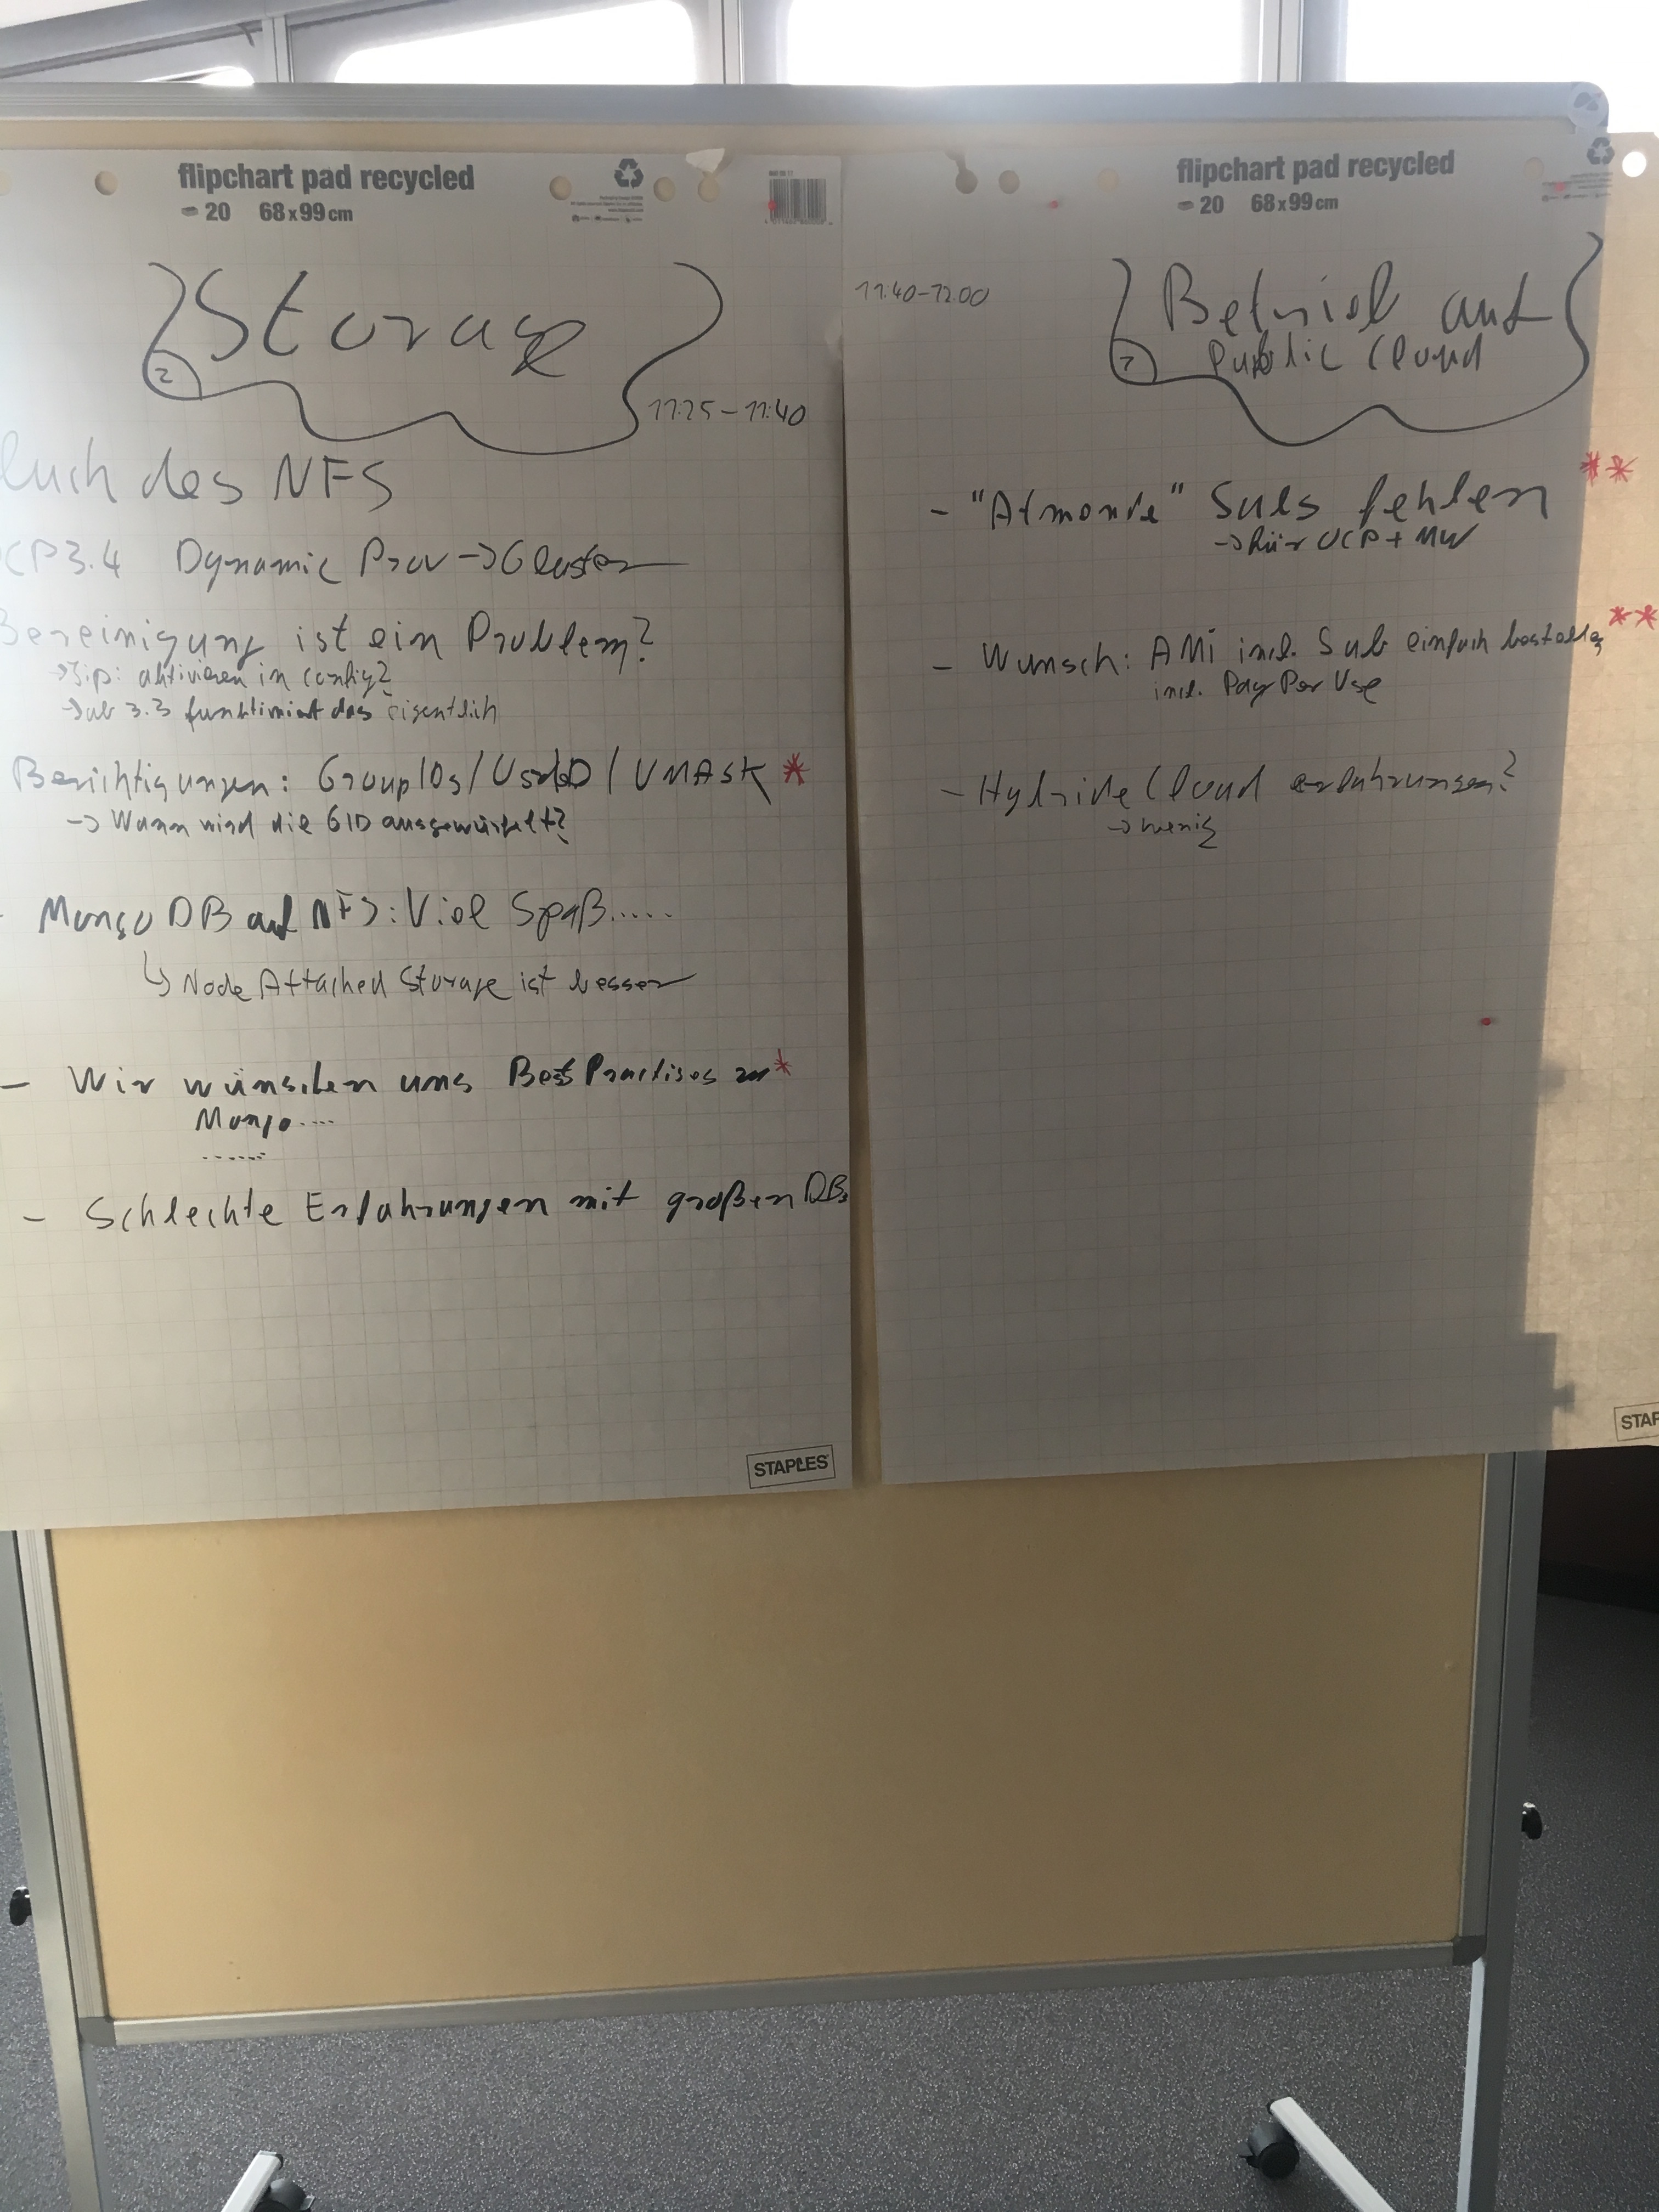 flipchart pad recycled
20 68x99cm
Storage
2
11:25 - 11:40
luch des NFS
CP3.4 Dynamic Prov -> Gluster
Bereinigung ist ein Problem?
-> Tip: aktivieren in config?
-> ab 3.3 funktioniert das eigentlich
Berichtigungen: GroupIDs/UserID/UMASK *
-> Wann wird die GID ausgewürfelt?
- MongoDB auf NFS: Viel Spaß.....
↳ Node Attached Storage ist besser
- Wir wünschen uns Best Practises zu *
Mongo....
......
- Schlechte Erfahrungen mit großen DBs
STAPLES
flipchart pad recycled
20 68x99cm
11:40-12:00
Betrieb auf
Public Cloud
7
- "Atmende" Subs fehlen **
-> Für OCP + MW
- Wunsch: AMI incl. Sub einfach bestellen **
incl. Pay Per Use
- Hybride Cloud erfahrungen?
-> wenig
STAP